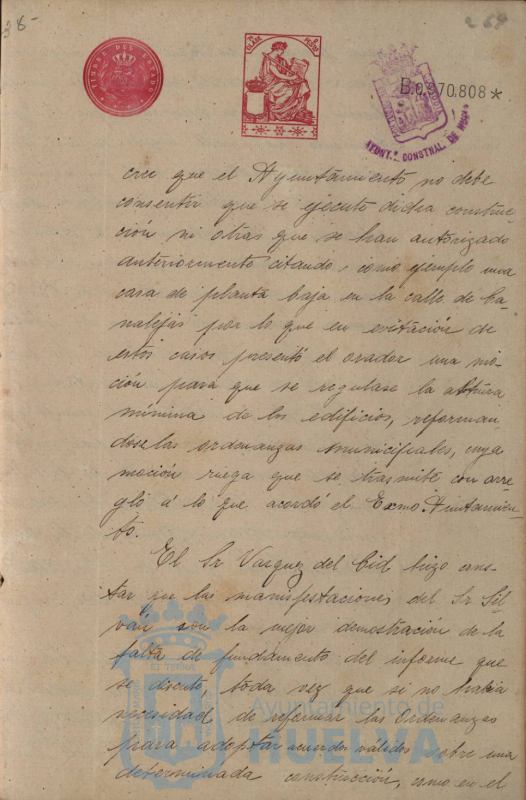 269
TIMBRE DEL ESTADO
CLASE
B.0.770.808*
AYUNT.º CONSTNAL. DE
cree que el Ayuntamiento no debe
consentir que se ejecute dicha construc-
ción ni otras que se han autorizado
anteriormente citando, como ejemplo una
casa de planta baja en la calle de Ca-
nalejas por lo que en evitación de
estos casos presentó el orador una mo-
ción para que se regulase la altura
mínima de los edificios, reforman-
dose las ordenanzas municipales, cuya
moción ruega que se trasmite con arre-
glo á lo que acordó el Exmo. Auntamien-
to.
El Sr Vazquez del Cid hizo cons-
tar que las manifestaciones del Sr Sil-
ván son la mejor demostración de la
falta de fundamento del informe que
se discute, toda vez que si no habia
necesidad de reformar las Ordenanzas
para adoptar acuerdos válidos sobre una
determinada construcción, como en el
Ayuntamiento de
HUELVA